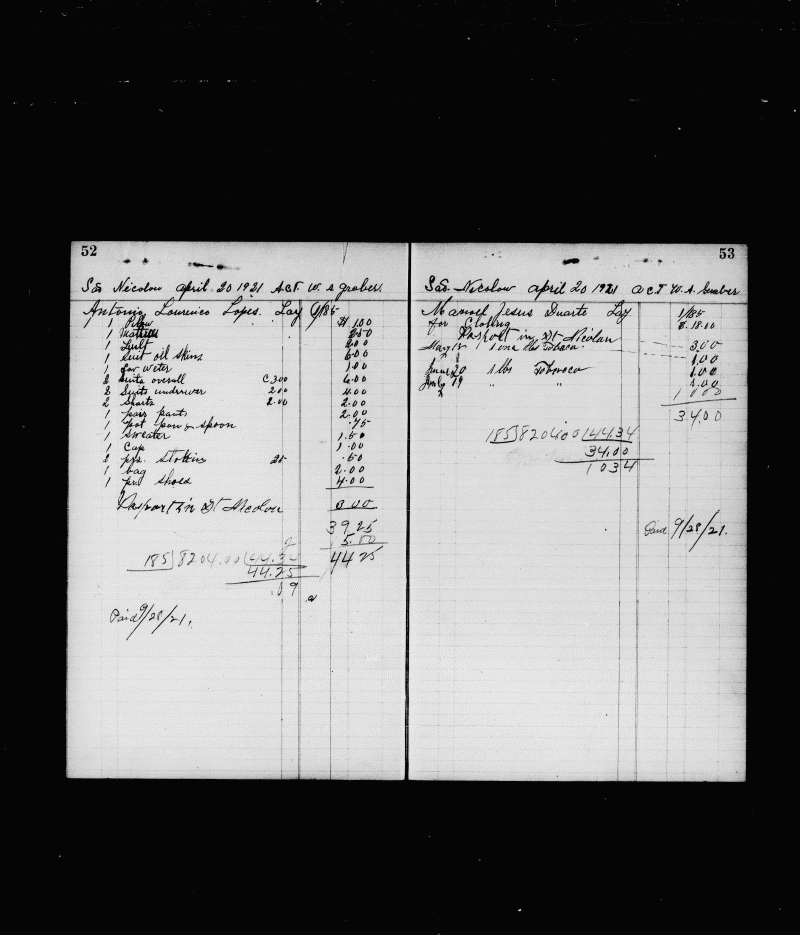 52
São Nicolau april. 20 1921 Act W. A Grober.
Antonio Lourenco Lopes. Lay 1/185
1 Pilow $1.00
1 Mattress
1 Quilt 2.00
1 Suit oil skins 6.00
1 Sow Weter 1.00
2 Suits overall @ 3.00 6.00
2 Suits underwear 2.00 4.00
2 Shorts 2.00 2.00
1 pair pants 2.00
1 pot pan & spoon .75
1 Sweater 1.50
1 Cap 1.00
2 prs. Stokins 25 .50
1 bag 2.00
1 prs Shoes 4.00
Pasport in St Nicolau 3.00
39 25
5.00
185)8204.00(44.3
44 25
44.25
.09
Paid 9/28/21.
53
São. Nicolau april 20 1921 a C.T W.A. Grober
Manoel Jesus Duarte Lay 1/185
for Clothing $.18.00
Pasport in St Nicolau
May 15 1 one lbs Tobaco. 3.00
1.00
June 20 1 lbs Tobacco 1.00
July 19 " " 1.00
1 0.00
34.00
185)8204.00(44.34
34.00
10 34
Paid 9/28/21.